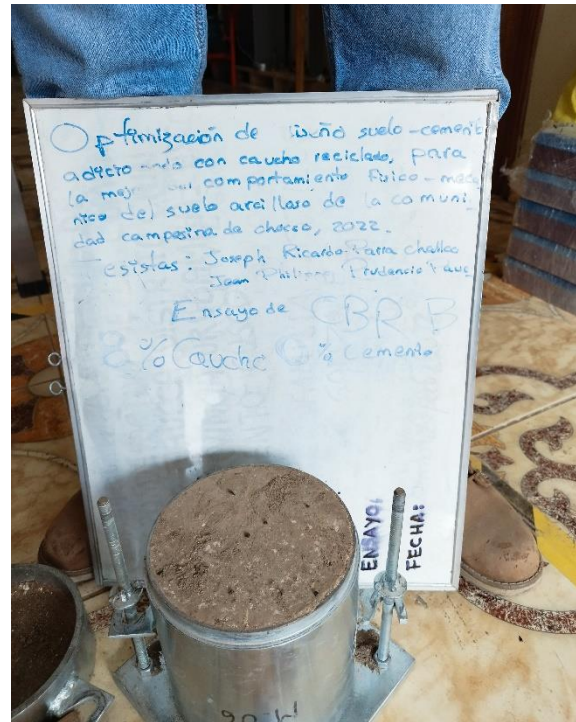 Optimización de diseño suelo-cemento
con caucho reciclado, para
la comportamiento físico-mecá
nico del suelo arcilloso de la comuni
dad campesina de chocco, 2022.
Tesistas: Joseph Ricardo Parra Challco
Jean Prudencio
Ensayo de CBR B
% Caucho % Cemento
ENSAYO:
FECHA: